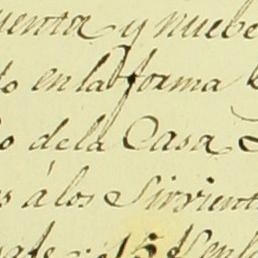 uenta y nueve
do en la forma
o de la Casa
es á los Sirvient